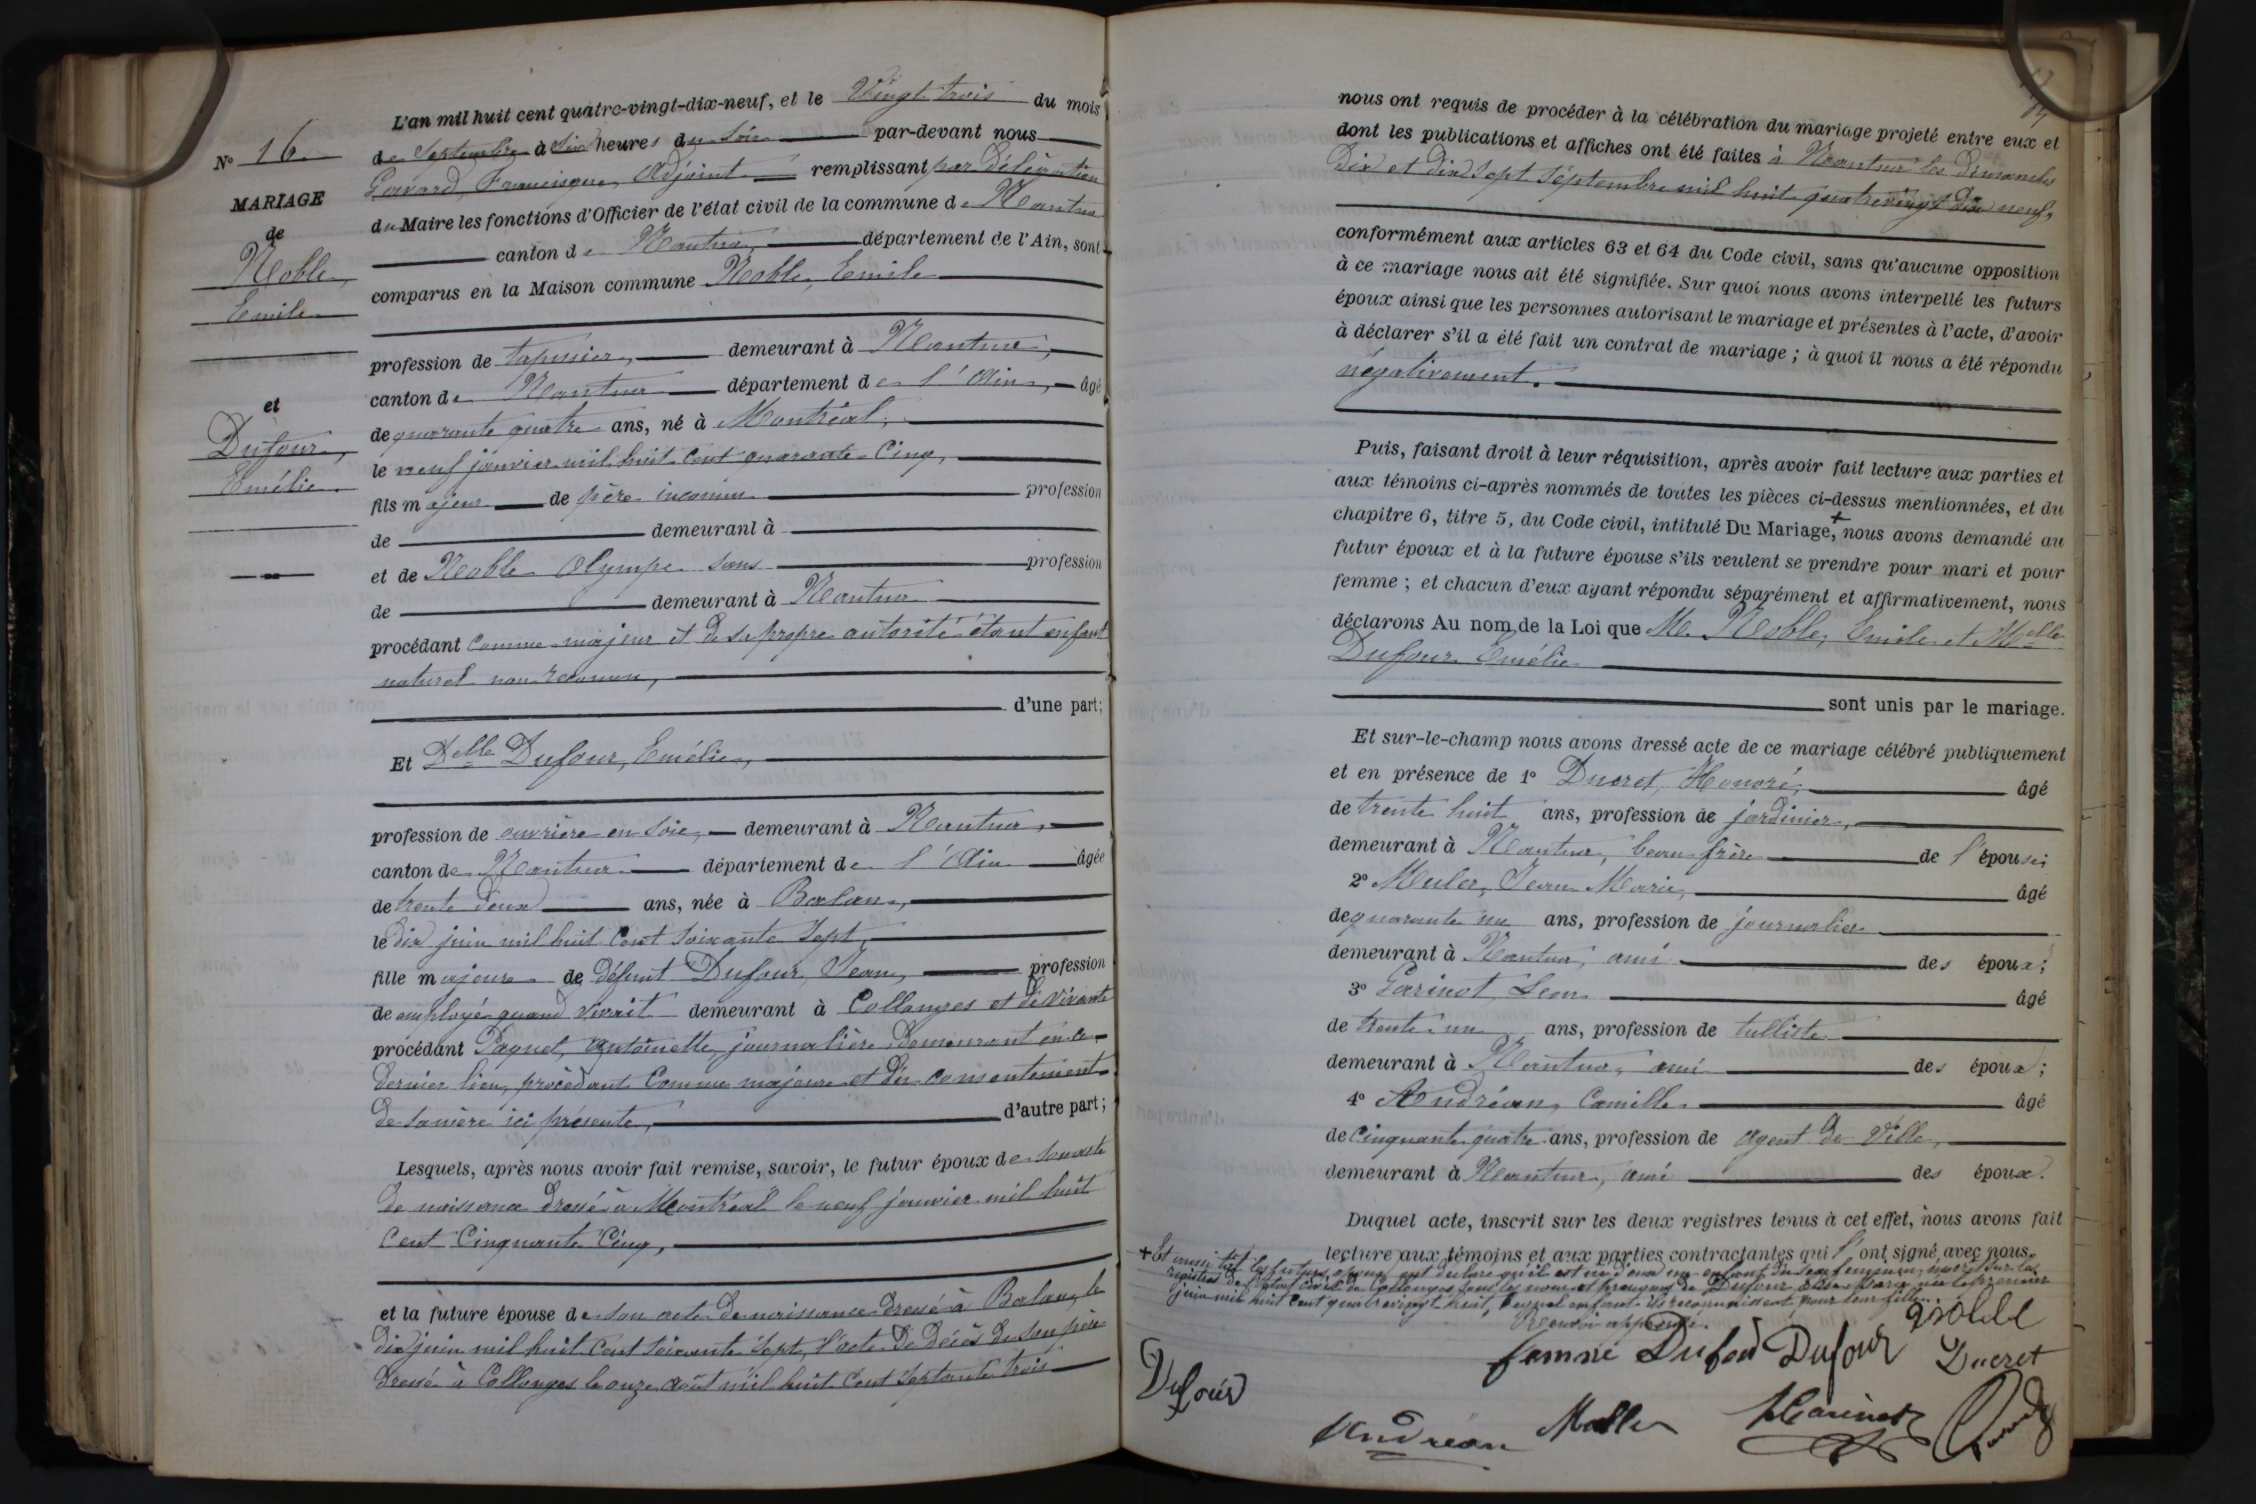 L'an mil huit cent quatre-vingt-dix-neuf, et le Vingt trois du mois
de Septembre à Six heures du Soir par-devant nous
Gavard, Francisque, Adjoint remplissant par Délégation
du Maire les fonctions d'Officier de l'état civil de la commune de Nantua
canton de Nantua, département de l'Ain, sont
comparus en la Maison commune Noble, Emile
N° 16
MARIAGE
de
Noble,
Emile
et
Dufour,
Emélie.
profession de demeurant à Nantua,
canton de Nantua département de l'Ain, âgé
de quarante quatre ans, né à Montréal,
le neuf janvier mil huit cent quarante-Cinq,
fils majeur de père inconnu profession
de demeurant à
et de Noble Olympe sans profession
de demeurant à Nantua
procédant comme majeur et de sa propre autorité étant enfant
naturel non reconnu,
d'une part;
Et Delle Dufour, Emélie,
profession de ouvrière en soie, demeurant à Nantua,
canton de Nantua département de l'Ain âgée
de trente deux ans, née à Balan,
le dix juin mil huit cent soixante sept,
fille majeure de défunt Dufour, Jean, profession
de employé quand vivait demeurant à Collonges et de vivante
procédant Paquet, Antoinette, journalière demeurant en ce
dernier lieu, procédant comme majeure et du consentement
de sa mère ici présente, d'autre part;
Lesquels, après nous avoir fait remise, savoir, le futur époux de son acte
de naissance dressé à Montréal le neuf janvier mil huit
cent cinquante Cinq,
et la future épouse de son acte de naissance dressé à Balan, le
dix juin mil huit cent soixante sept, l'acte de décès de son père
dressé à Collonges le onze août mil huit cent septante trois
nous ont requis de procéder à la célébration du mariage projeté entre eux et
dont les publications et affiches ont été faites à Nantua les dimanches
dix et dix sept Septembre mil huit quatrevingt dix neuf,
conformément aux articles 63 et 64 du Code civil, sans qu'aucune opposition
à ce mariage nous ait été signifiée. Sur quoi nous avons interpellé les futurs
époux ainsi que les personnes autorisant le mariage et présentes à l'acte, d'avoir
à déclarer s'il a été fait un contrat de mariage ; à quoi il nous a été répondu
négativement.
Puis, faisant droit à leur réquisition, après avoir fait lecture aux parties et
aux témoins ci-après nommés de toutes les pièces ci-dessus mentionnées, et du
chapitre 6, titre 5, du Code civil, intitulé Du Mariage,+ nous avons demandé au
futur époux et à la future épouse s'ils veulent se prendre pour mari et pour
femme ; et chacun d'eux ayant répondu séparément et affirmativement, nous
déclarons Au nom de la Loi que M. Noble, Emile et Melle
Dufour Emélie
sont unis par le mariage.
Et sur-le-champ nous avons dressé acte de ce mariage célébré publiquement
et en présence de 1° Ducret, Honoré, âgé
de trente huit ans, profession de jardinier,
demeurant à Nantua, beau-frère de l'épouse;
2° Jean Marie, âgé
de quarante un ans, profession de journalier
demeurant à Nantua, ami des époux;
3° Garinot, Léon âgé
de trente un ans, profession de tulliste
demeurant à Nantua, ami des époux;
4° Andréan, Camille. âgé
de Cinquante quatre ans, profession de agent de ville,
demeurant à Nantua, ami des époux.
Duquel acte, inscrit sur les deux registres tenus à cet effet, nous avons fait
lecture aux témoins et aux parties contractantes qui l'ont signé avec nous.
+ Et aussi tôt les futurs époux ont déclaré qu'il est né d'eux un enfant du sexe féminin, inscrit sur les
registres de l'état civil de Collonges sous les noms et prénoms de Dufour Marie née le premier
juin mil huit cent quatrevingt huit, lequel enfant ils reconnaissent pour leur fille.
Renvoi approuvé.
Noble
femme Dufour Dufour Ducret
Dufour
Andréan Garinot